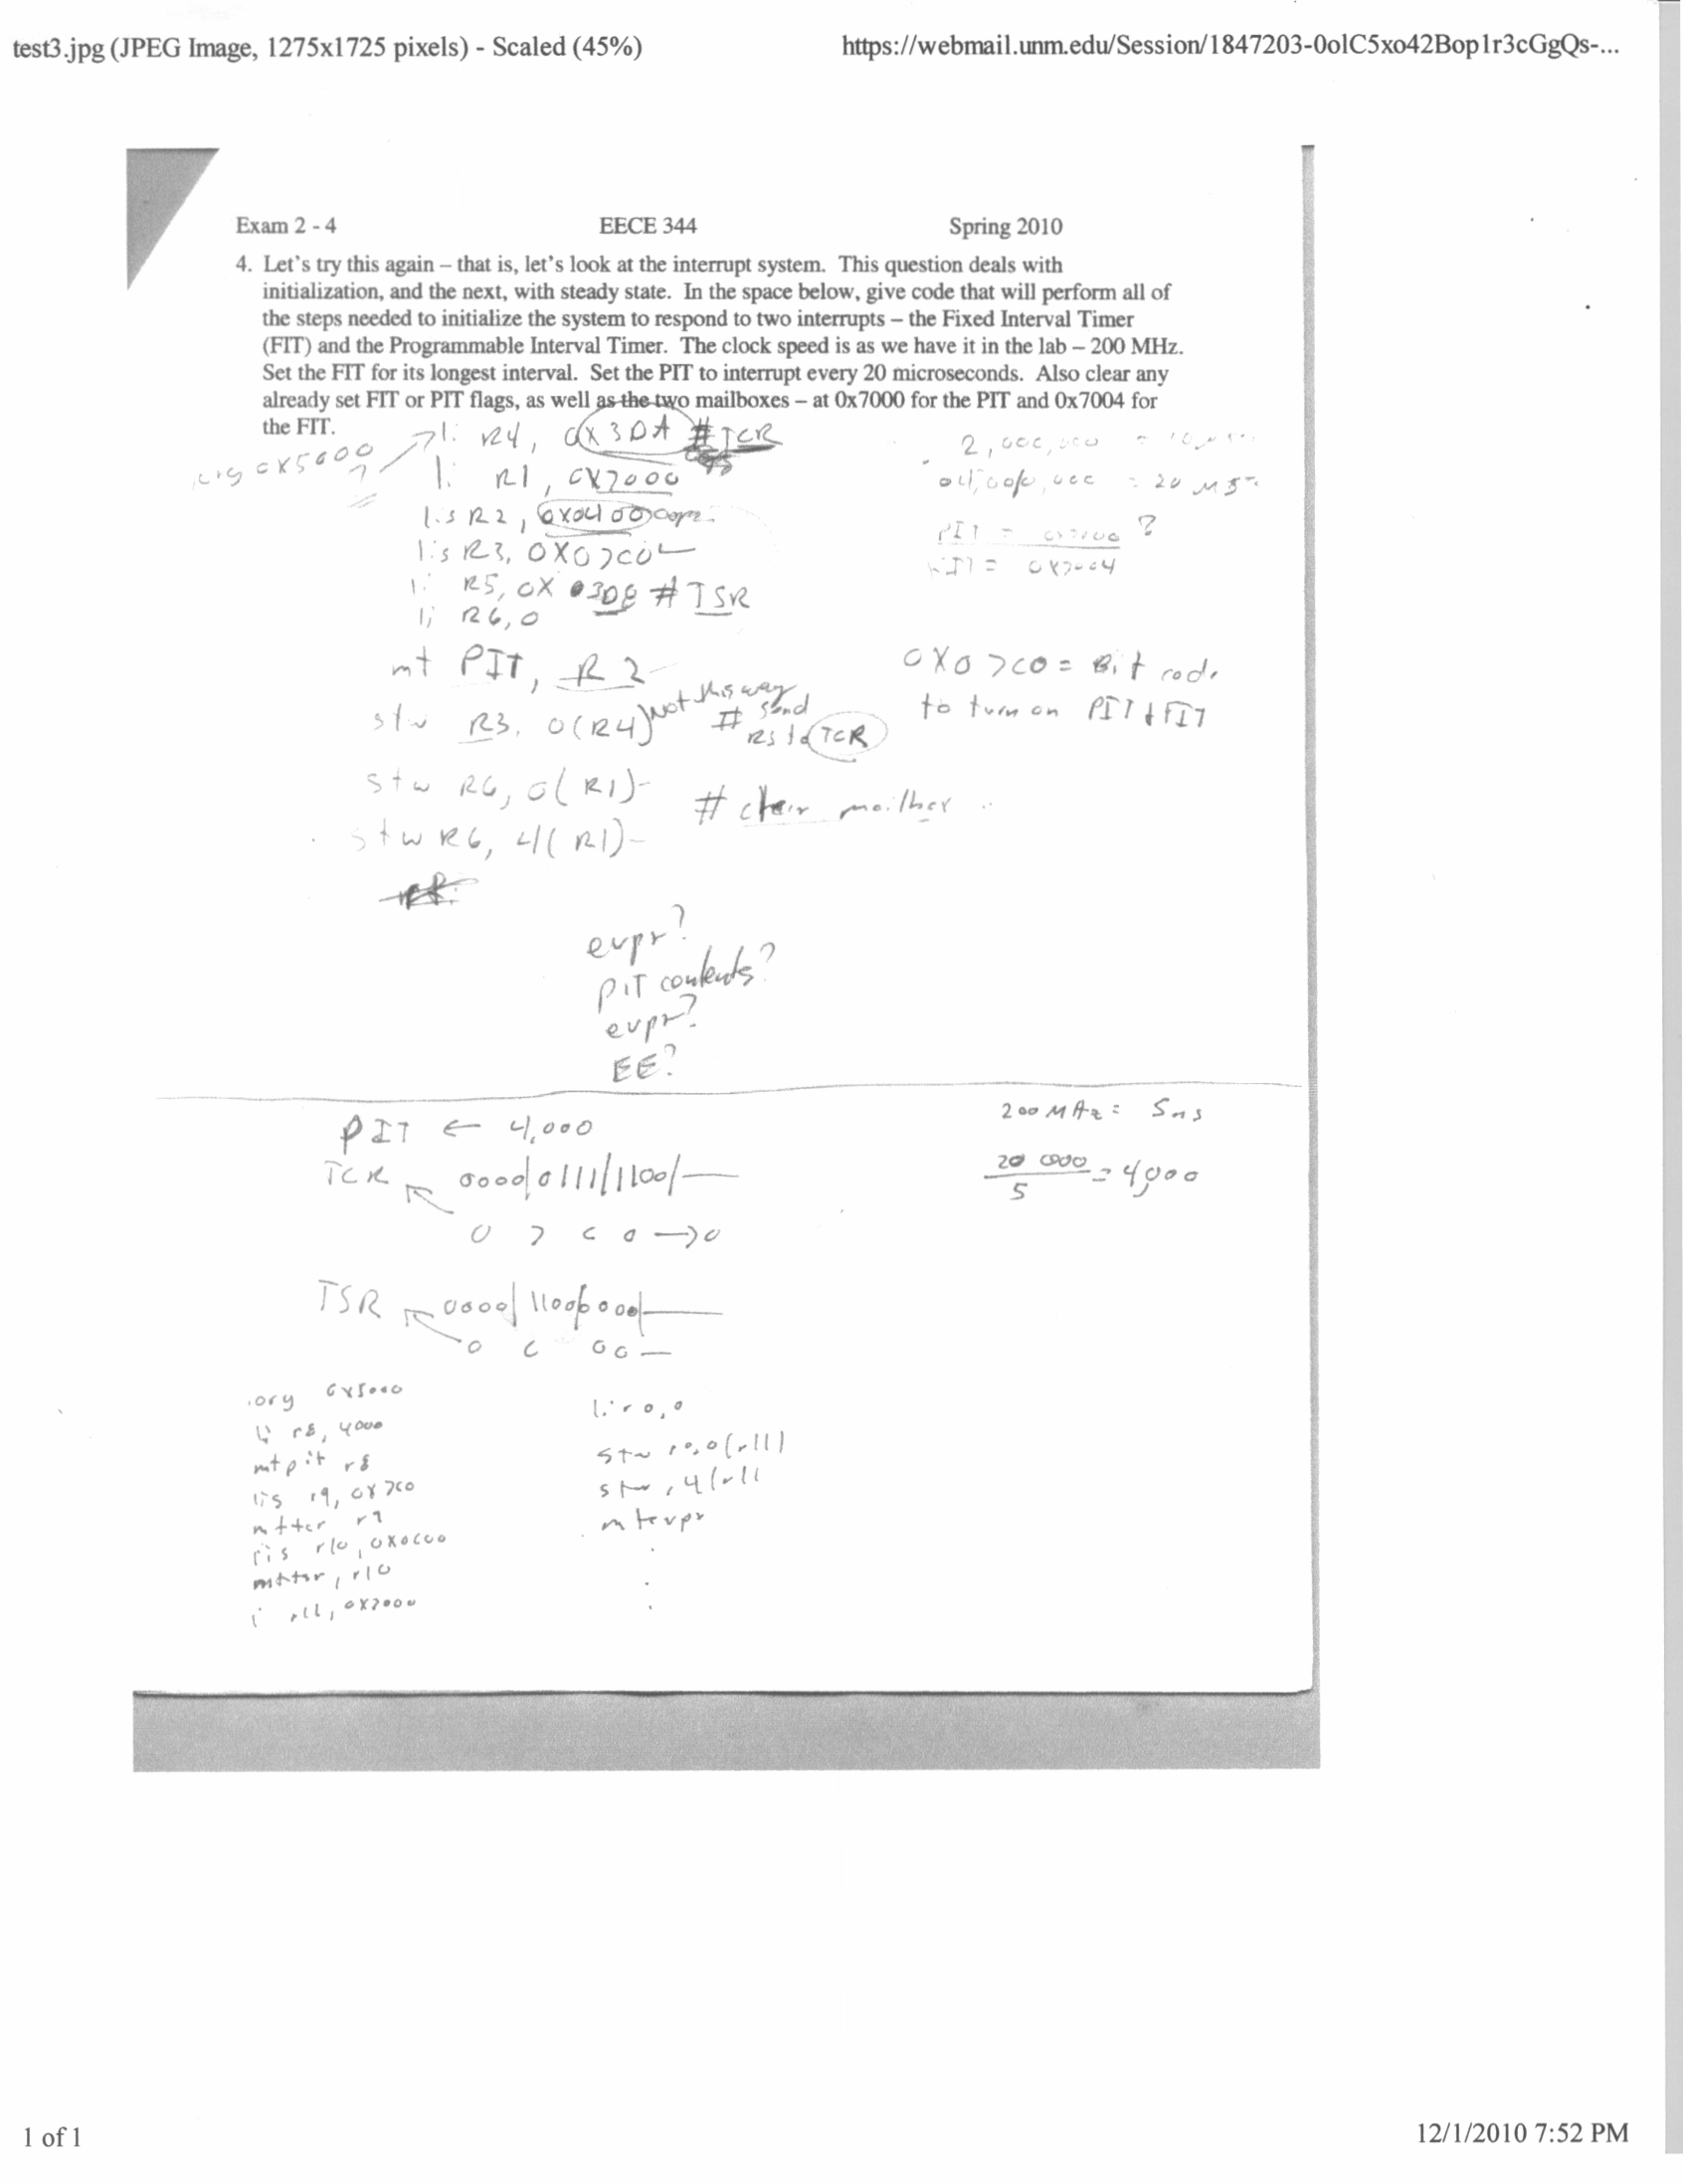 test3.jpg (JPEG Image, 1275x1725 pixels) - Scaled (45%)
https://webmail.unm.edu/Session/1847203-0olC5xo42Bop1r3cGgQs-...
Exam 2 - 4 EECE 344 Spring 2010
4. Let's try this again – that is, let's look at the interrupt system. This question deals with
initialization, and the next, with steady state. In the space below, give code that will perform all of
the steps needed to initialize the system to respond to two interrupts – the Fixed Interval Timer
(FIT) and the Programmable Interval Timer. The clock speed is as we have it in the lab – 200 MHz.
Set the FIT for its longest interval. Set the PIT to interrupt every 20 microseconds. Also clear any
already set FIT or PIT flags, as well as the two mailboxes – at 0x7000 for the PIT and 0x7004 for
the FIT.
.org 0x5000 ?
li R4, 0x3DA # TCR
li R1, 0x7000
lis R2, 0x0400
lis R3, 0X07C0
li R5, 0X 03D8 # TSR
li R6, 0
2,000,000 =
= 20
PIT = 0x7000 ?
FIT = 0x7004
mt PIT, R2
stw R3, 0(R4) Not this way # send
to TCR
0X07C0 = Bit code
to turn on PIT & FIT
stw R6, 0(R1)
# clear mailbox
stw R6, 4(R1)
evpr?
PIT contents?
evpr?
EE?
PIT ← 4,000
200 MHz = 5ns
20 000 / 5 = 4,000
TCR ← 0000|0111|1100|—
0 7 C 0 → 0
TSR ← 0000|1100|0000|—
0 C 0 0 —
.org 0x5000
li r8, 4000
mtpit r8
lis r9, 0x7C0
mttcr r9
lis r10, 0x0C00
mttsr, r10
li r11, 0x7000
li r0,0
stw r0,0(r11)
stw , 4(r11
mtevpr
1 of 1
12/1/2010 7:52 PM